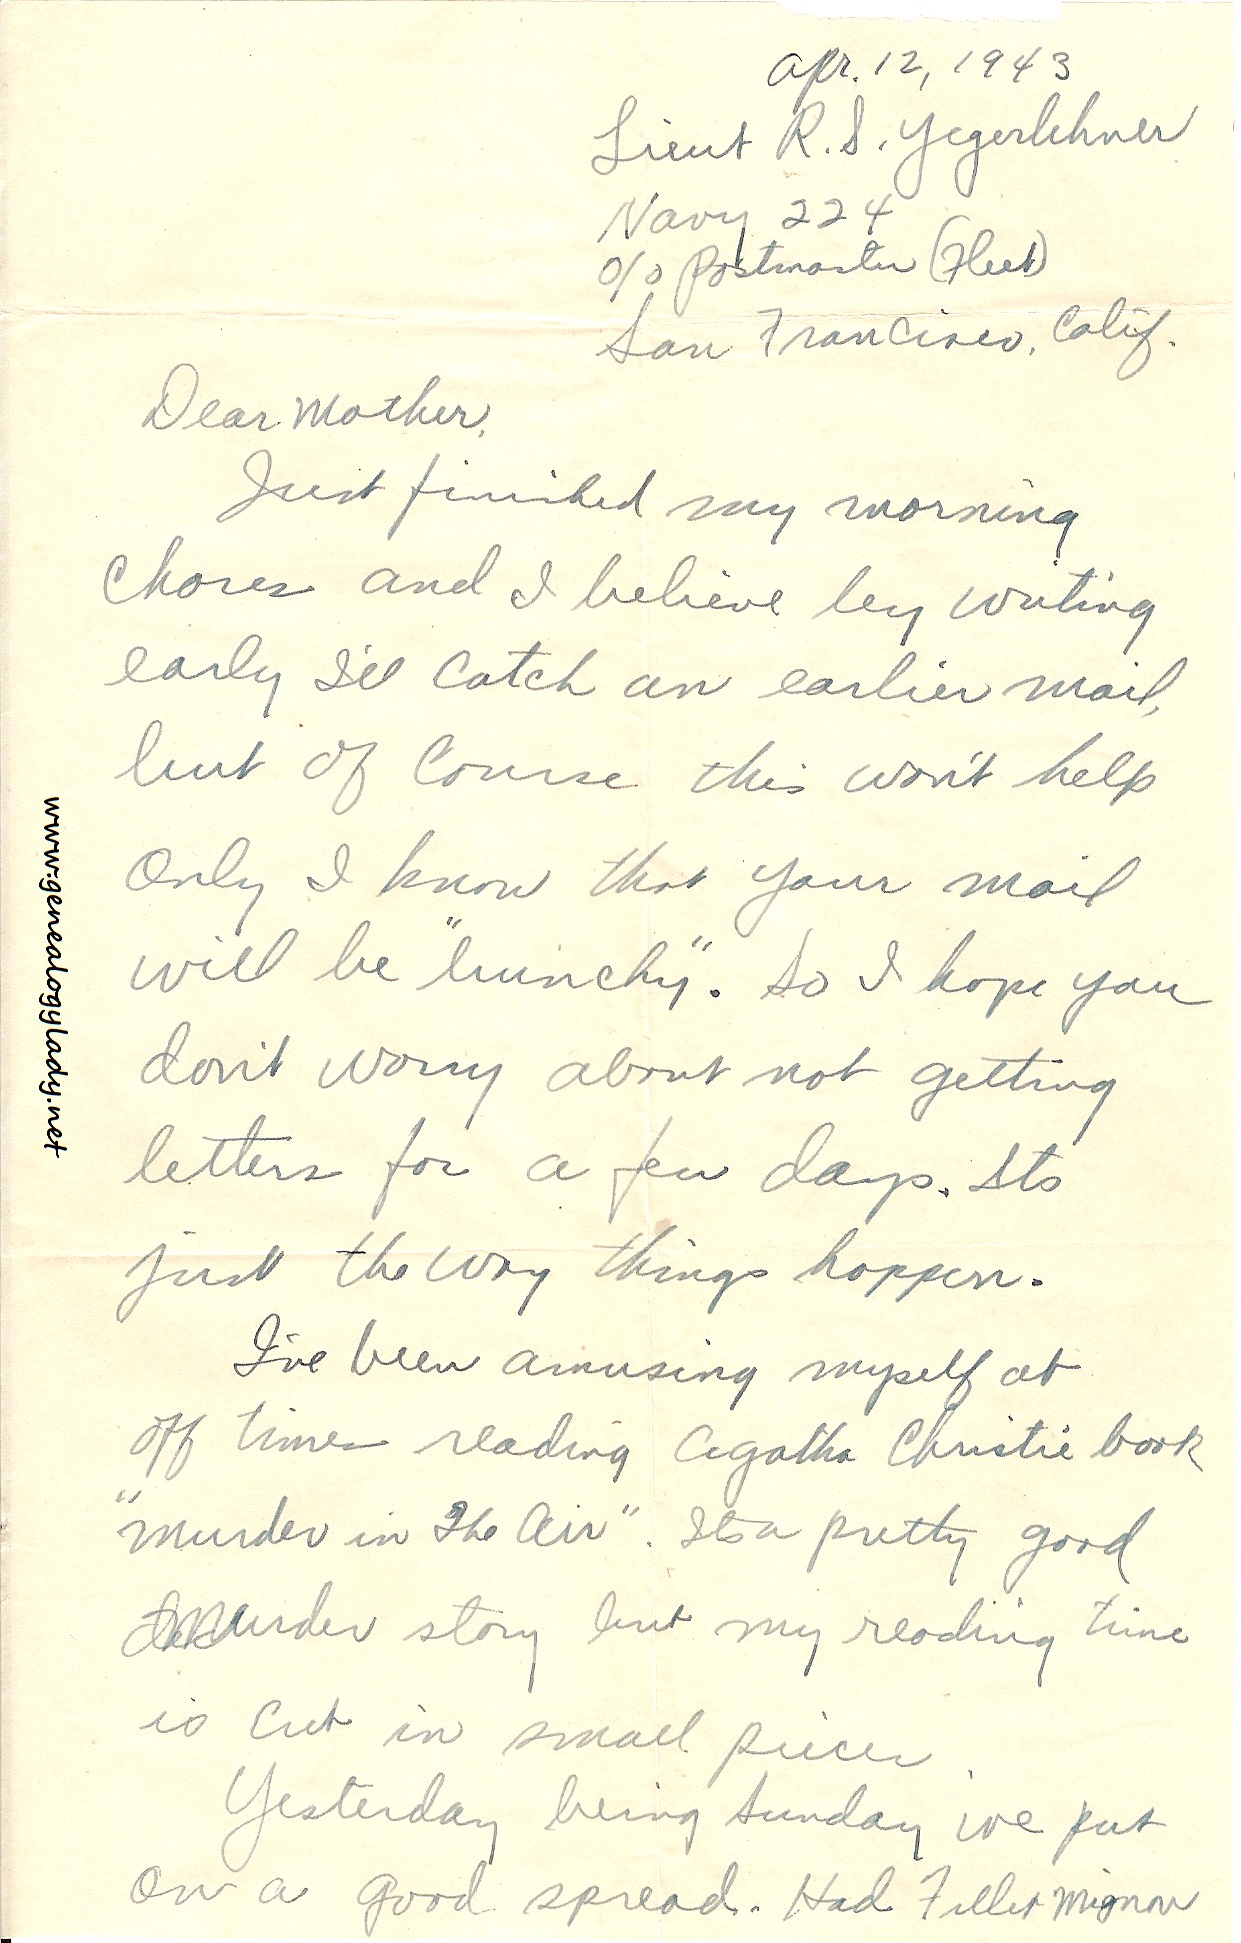 Apr. 12, 1943
Lieut R. S. Yegerlehner
Navy 224
c/o Postmaster (Fleet)
San Francisco, Calif.
Dear Mother,
Just finished my morning
chores and I believe by writing
early I'll catch an earlier mail,
but of course this won't help
only I know that your mail
will be "bunchy". So I hope you
don't worry about not getting
letters for a few days. Its
just the way things happen.
I've been amusing myself at
off times reading Agatha Christie book
"Murder in The Air". Its a pretty good
murder story but my reading time
is cut in small pieces.
Yesterday being Sunday we put
on a good spread. Had Fillet Mignon
www.genealogylady.net